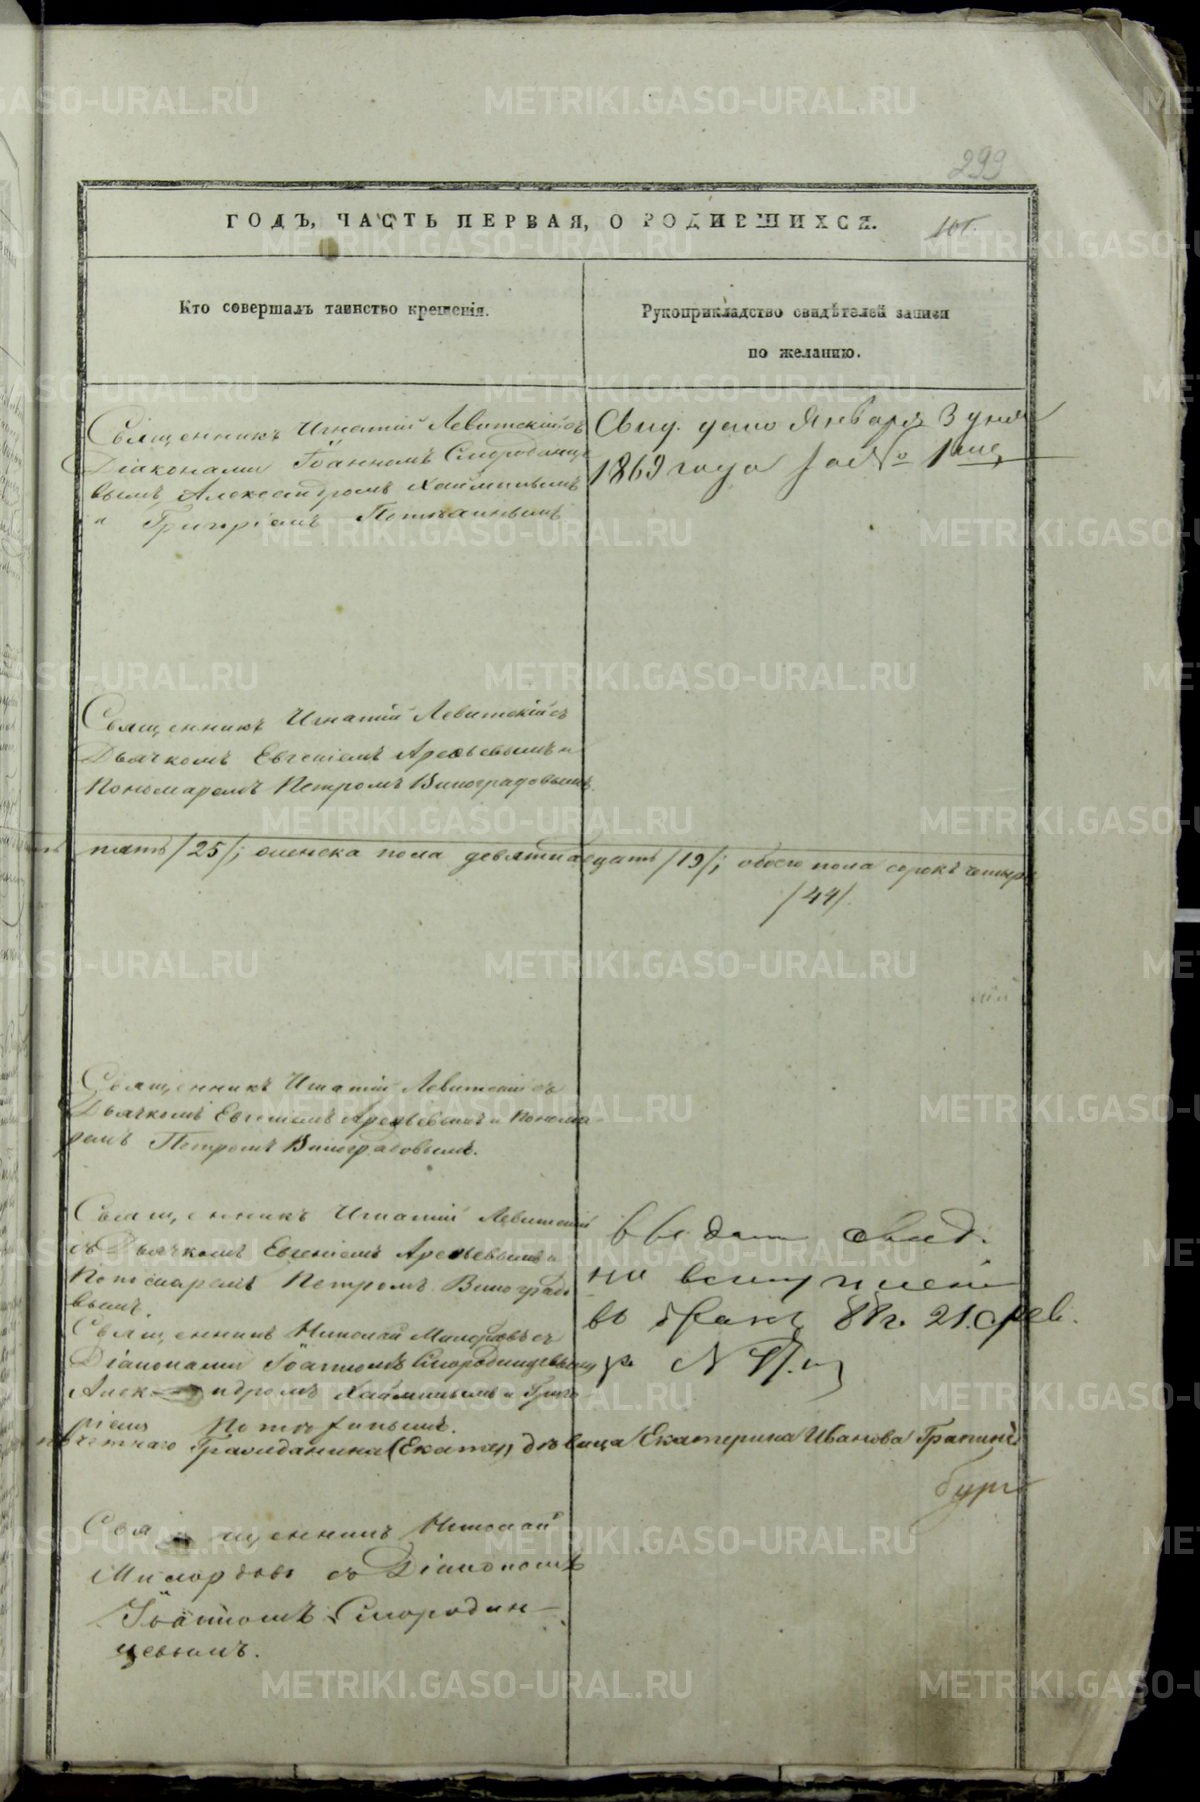 299
ГОДЪ, ЧАСТЬ ПЕРВАЯ, О РОДИВШИХСЯ.
Кто совершалъ таинство крещенія.
Рукоприкладство свидѣтелей записи
по желанію.
Священникъ Игнатій Левитскій съ
Діаконами Іоанномъ Смородинце
вымъ, Александромъ Хайминымъ
и Григоріемъ
Свид. дано Января 3 дня
1869 года за № 1
Священникъ Игнатій Левитскій съ
Дьячкомъ Евгеніемъ Арефьевымъ и
Пономаремъ Петромъ Виноградовымъ.
пять /25/; женска пола девятнадцать /19/; обоего пола сорокъ четыре
/44/.
Священникъ Игнатій Левитскій съ
Дьячкомъ Евгеніемъ Арефьевымъ и Понома
ремъ Петромъ Виноградовымъ.
Священникъ Игнатій Левитскій
съ Дьячкомъ Евгеніемъ Арефьевымъ и
Пономаремъ Петромъ Виноградо
вымъ.
свид.
на вступленіе
въ бракъ 88 г. 21 фев.
Священникъ Николай съ
Діаконами Іоанномъ Смородинцевымъ
Алек ндромъ Хайминымъ и Григо
ріемъ
почетнаго Гражданина (Екатер, дѣвица Екатерина Иванова
бург
Свя щенникъ Николай
съ Діакономъ
Іоанномъ Смородин-
цевымъ.
METRIKI.GASO-URAL.RU